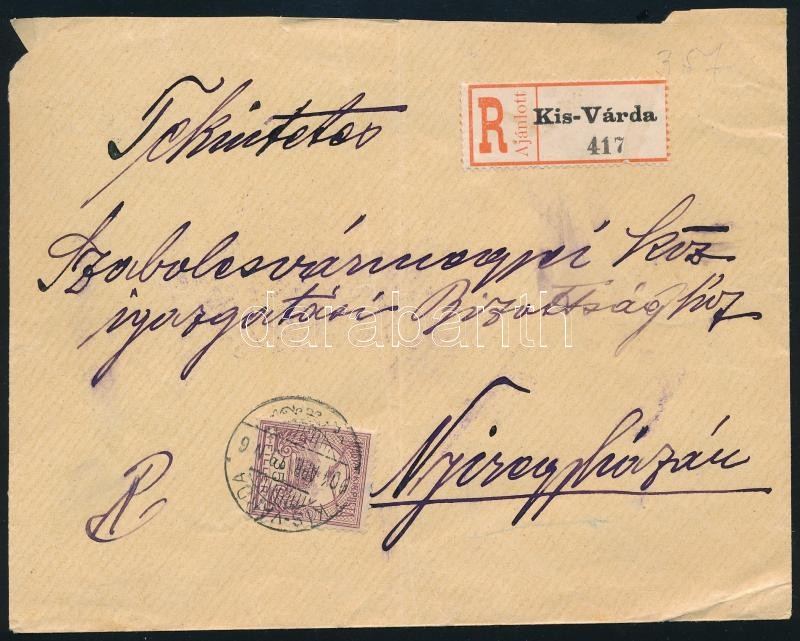 357
R Ajánlott Kis-Várda
417
Tekintetes
Szabolcsvármegyei köz
igazgatási Bizottsághoz
darabanth
Nyiregyházán
R
KIS-VÁRDA